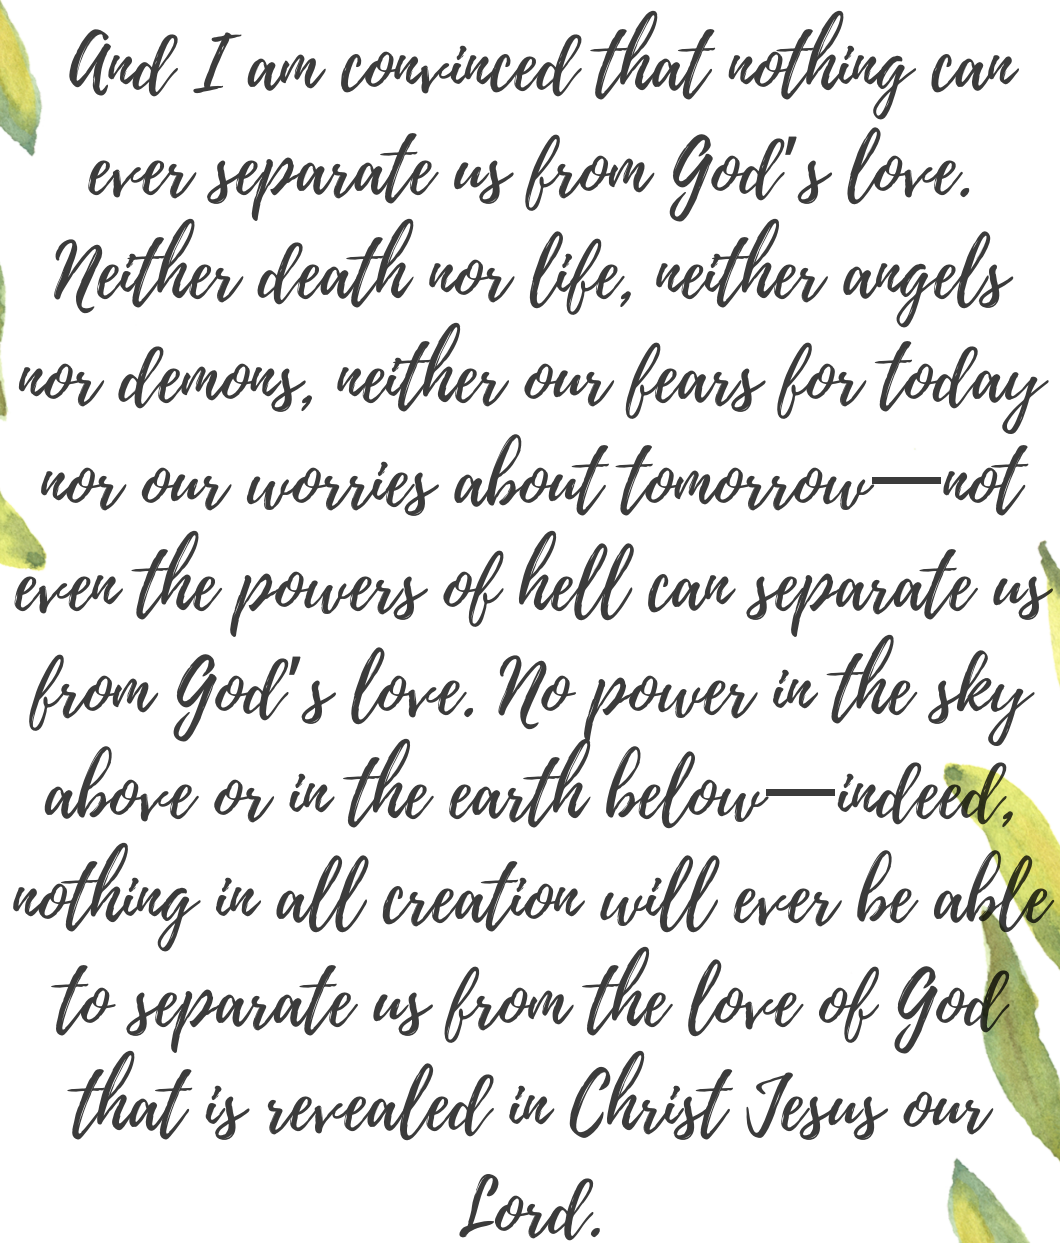 And I am convinced that nothing can
ever separate us from God's love.
Neither death nor life, neither angels
nor demons, neither our fears for today
nor our worries about tomorrow—not
even the powers of hell can separate us
from God's love. No power in the sky
above or in the earth below—indeed,
nothing in all creation will ever be able
to separate us from the love of God
that is revealed in Christ Jesus our
Lord.